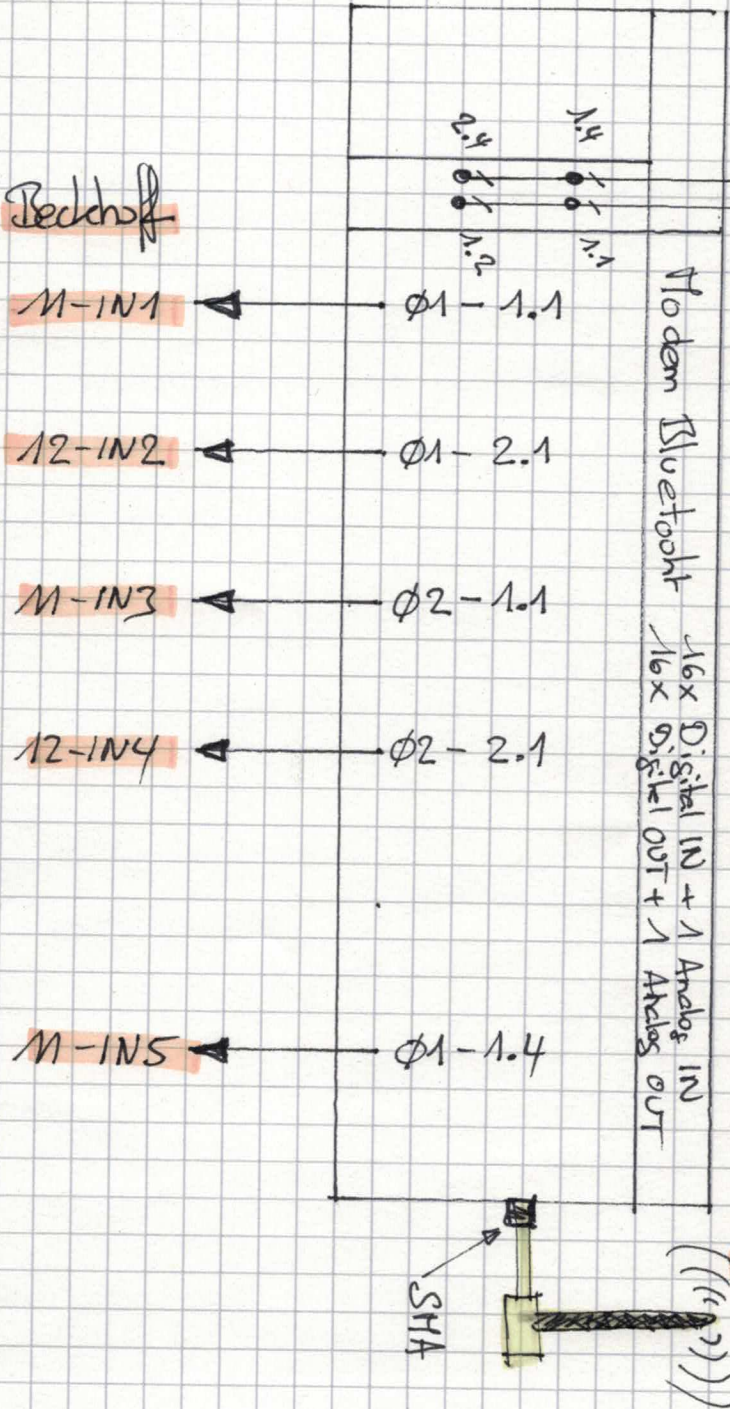 2.4 1.4
1.2 1.1
Beckhoff
11-IN1 Ø1-1.1
12-IN2 Ø1-2.1
11-IN3 Ø2-1.1
12-IN4 Ø2-2.1
11-IN5 Ø1-1.4
Modem Bluetooht
16x Digital IN + 1 Analog IN
16x Digital OUT + 1 Analog OUT
SMA